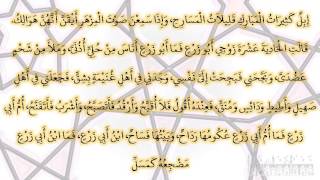 إِبِلٌ كَثِيرَاتُ الْمَبَارِكِ قَلِيلَاتُ الْمَسَارِحِ، وَإِذَا سَمِعْنَ صَوْتَ الْمِزْهَرِ أَيْقَنَّ أَنَّهُنَّ هَوَالِكُ،
قَالَتِ الْحَادِيَةَ عَشْرَةَ زَوْجِي أَبُو زَرْعٍ فَمَا أَبُو زَرْعٍ أَنَاسَ مِنْ حُلِيٍّ أُذُنَيَّ، وَمَلَأَ مِنْ شَحْمٍ
عَضُدَيَّ، وَبَجَّحَنِي فَبَجِحَتْ إِلَيَّ نَفْسِي، وَجَدَنِي فِي أَهْلِ غُنَيْمَةٍ بِشِقٍّ، فَجَعَلَنِي فِي أَهْلِ
صَهِيلٍ وَأَطِيطٍ وَدَائِسٍ وَمُنَقٍّ، فَعِنْدَهُ أَقُولُ فَلَا أُقَبَّحُ وَأَرْقُدُ فَأَتَصَبَّحُ، وَأَشْرَبُ فَأَتَقَنَّحُ، أُمُّ أَبِي
زَرْعٍ فَمَا أُمُّ أَبِي زَرْعٍ عُكُومُهَا رَدَاحٌ، وَبَيْتُهَا فَسَاحٌ، ابْنُ أَبِي زَرْعٍ، فَمَا ابْنُ أَبِي زَرْعٍ
مَضْجِعُهُ كَمَسَلِّ